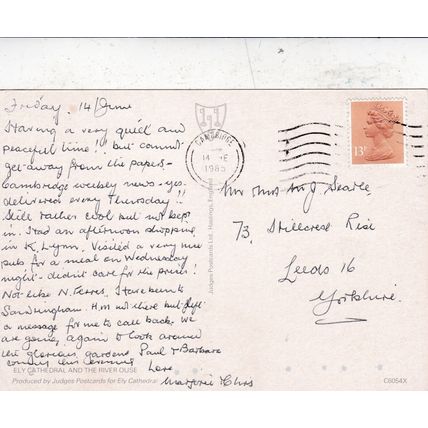 Friday. 14/June
Having a very quiet and
peaceful time!! but cannot
get away from the papers-
Cambridge weekly news - yes.
delivered every Thursday!!
Still rather cool but not kept
in. Had an afternoon shopping
in K. Lynn. Visited a very nice
pub for a meal on Wednesday
night - didn't care for the price!
Not like N. Ferres. Have been to
Sandringham. H.M not there but left
a message for me to call back. We
are going, again to look around
the glorious gardens. Paul & Barbara
coming this evening
Love
Marjorie & Chas
ELY CATHEDRAL AND THE RIVER OUSE
Produced by Judges Postcards for Ely Cathedral
Judges Postcards Ltd Hastings, England
CAMBRIDGE
14
1985
13P
Mr Mrs Searle
73, Stillcrest Rise
Leeds 16
Yorkshire.
C6054X